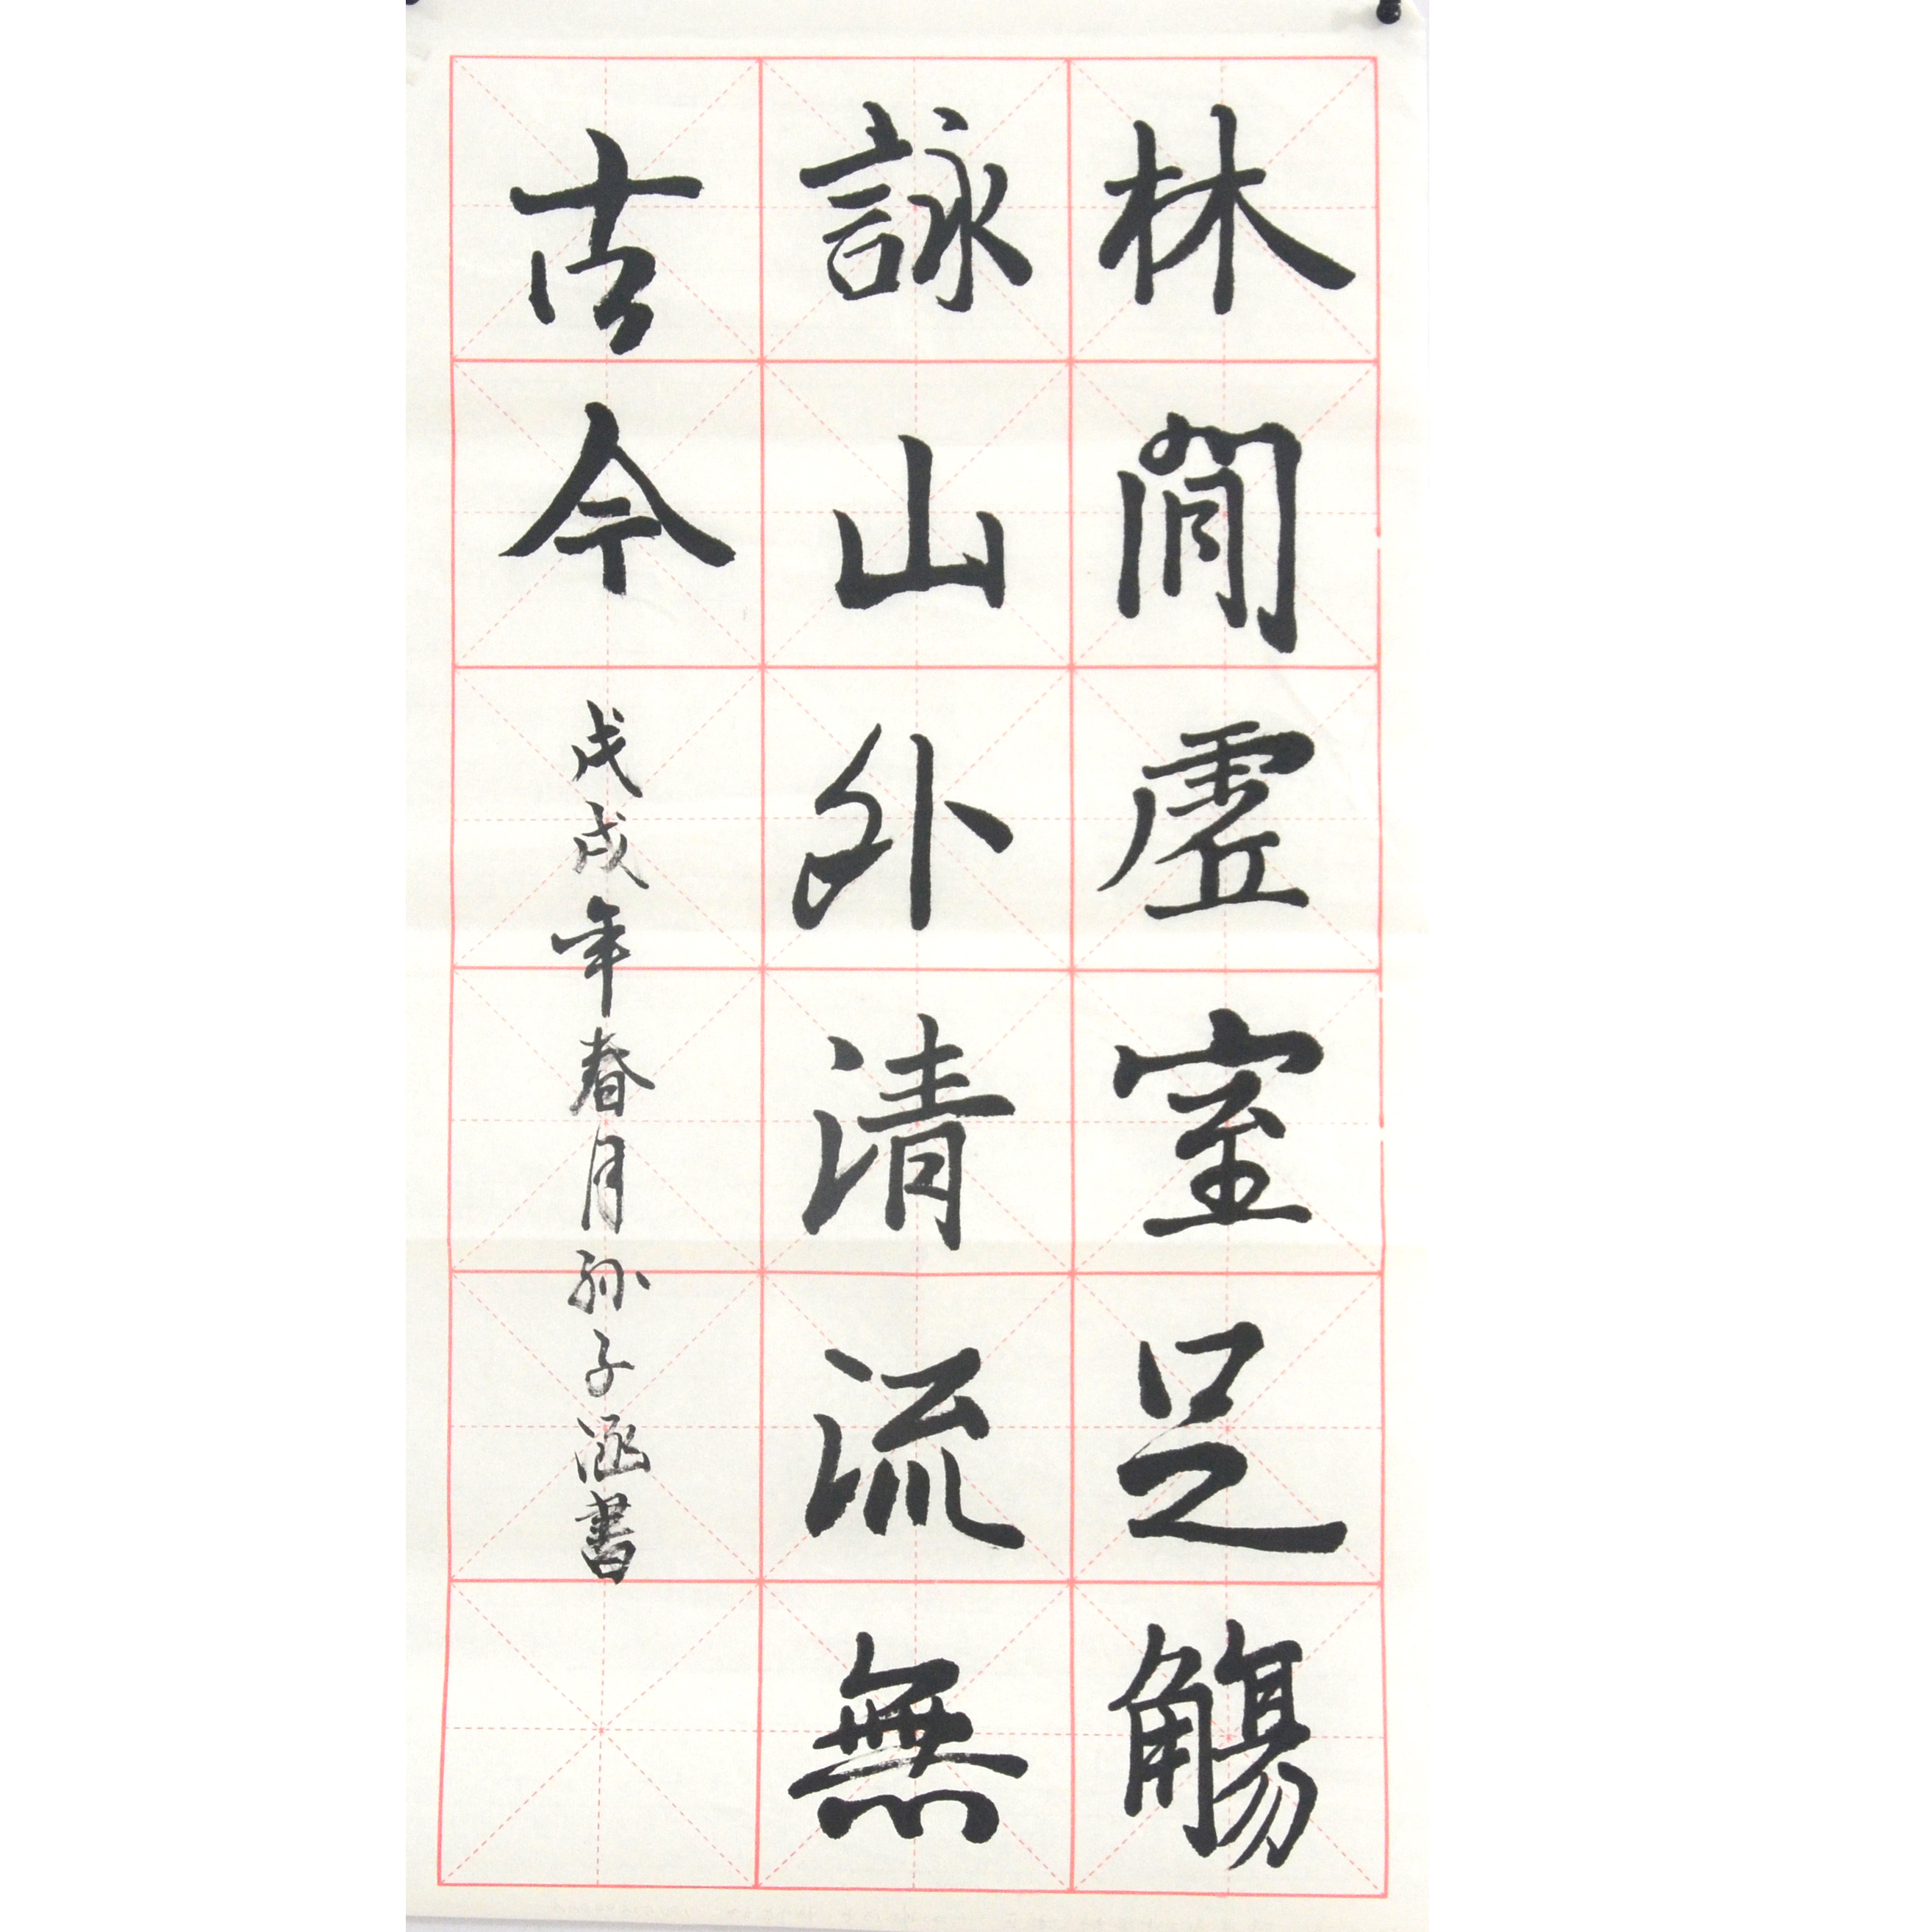 林間虛室足觴
詠山外清流無
古今
戊戌年春月孫子涵書